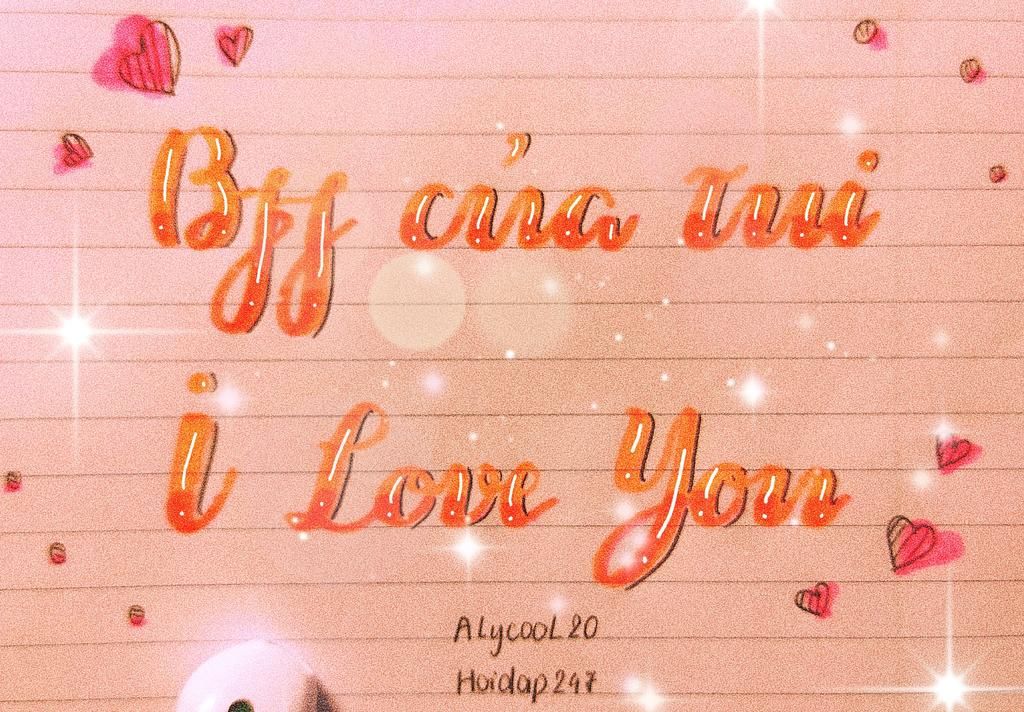 Bff của tui
i Love You
ALycooL20
Hoidap247